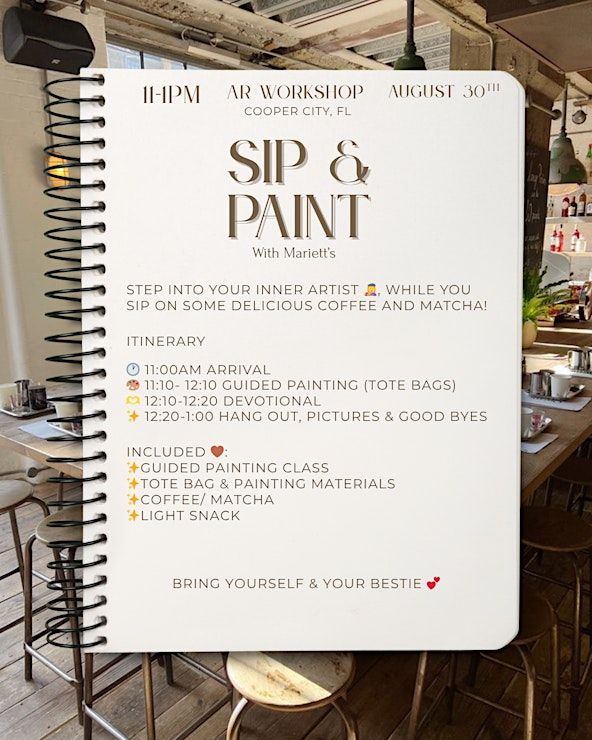 11-1PM AR WORKSHOP AUGUST 30TH
COOPER CITY, FL
SIP &
PAINT
With Mariett's
STEP INTO YOUR INNER ARTIST 👩‍🎨, WHILE YOU
SIP ON SOME DELICIOUS COFFEE AND MATCHA!
ITINERARY
🕐 11:00AM ARRIVAL
🎨 11:10- 12:10 GUIDED PAINTING (TOTE BAGS)
🫶 12:10-12:20 DEVOTIONAL
✨ 12:20-1:00 HANG OUT, PICTURES & GOOD BYES
INCLUDED 🤎:
✨GUIDED PAINTING CLASS
✨TOTE BAG & PAINTING MATERIALS
✨COFFEE/ MATCHA
✨LIGHT SNACK
BRING YOURSELF & YOUR BESTIE 💕